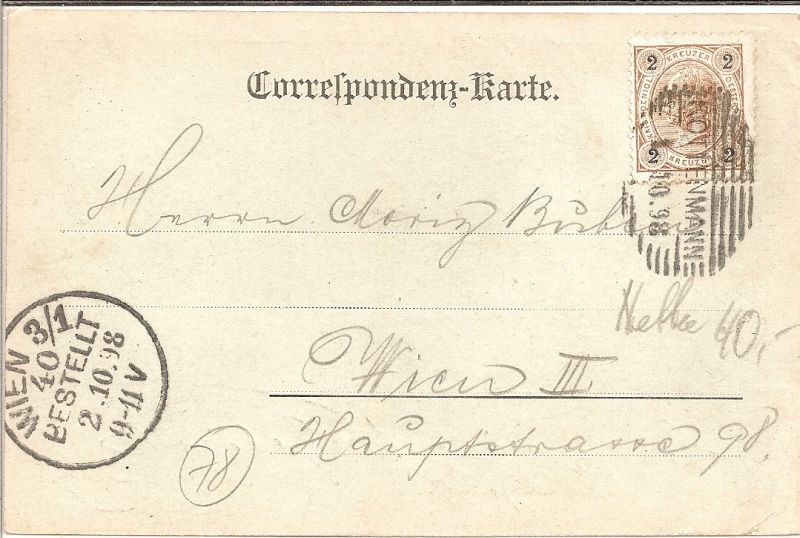 Correſpondenz-Karte.
2 KREUZER 2
2 KREUZER 2
ROTTENMANN
10.98
Herrn Moriz
40,-
Wien III
Hauptstrasse 98.
WIEN 3/1
40
BESTELLT
2.10.98
9-11 V
78